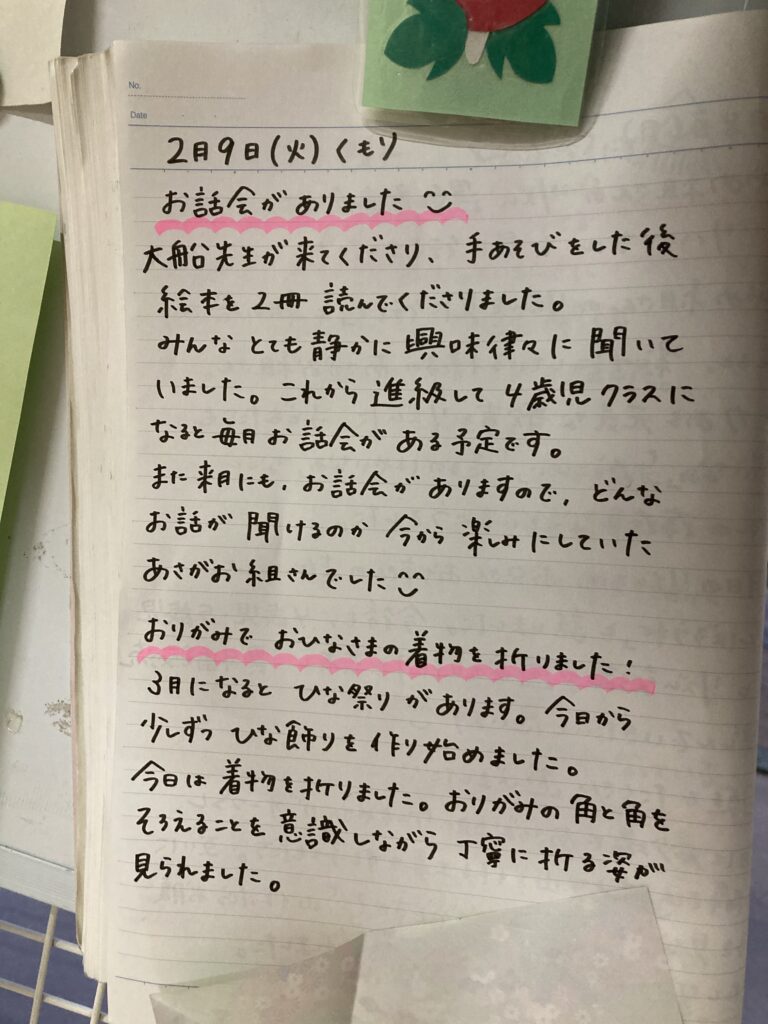 No.
Date
2月9日(火)くもり
お話会がありました
大船先生が来てくださり、手あそびをした後
絵本を2冊読んでくださりました。
みんなとても静かに興味律々に聞いて
いました。これから進級して4歳児クラスに
なると毎月お話会がある予定です。
また来月にも、お話会がありますので、どんな
お話が聞けるのか今から楽しみにしていた
あさがお組さんでした
おりがみでおひなさまの着物を折りました!
3月になるとひな祭りがあります。今日から
少しずつひな飾りを作り始めました。
今日は着物を折りました。おりがみの角と角を
そろえることを意識しながら丁寧に折る姿が
見られました。